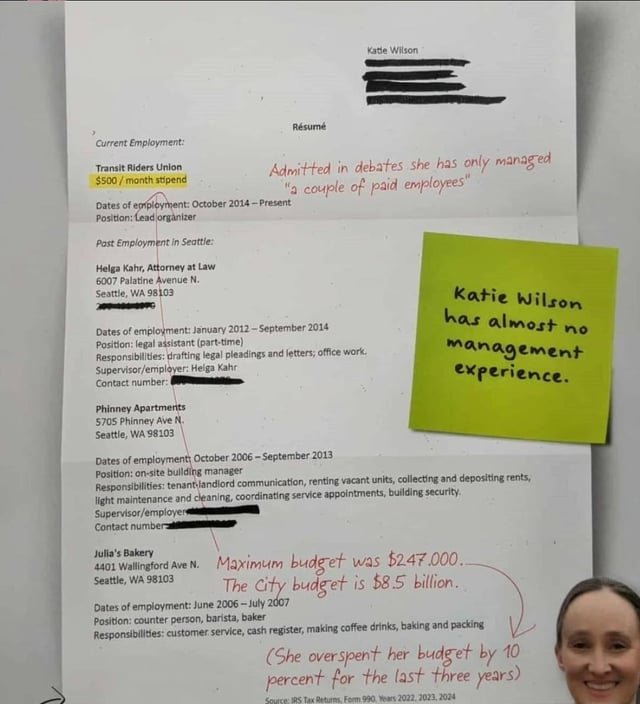 Katie Wilson
Résumé
Current Employment:
Transit Riders Union
$500 / month stipend
Admitted in debates she has only managed
"a couple of paid employees"
Dates of employment: October 2014 – Present
Position: Lead organizer
Past Employment in Seattle:
Helga Kahr, Attorney at Law
6007 Palatine Avenue N.
Seattle, WA 98103
Katie Wilson
has almost no
management
experience.
Dates of employment: January 2012 – September 2014
Position: legal assistant (part-time)
Responsibilities: drafting legal pleadings and letters; office work.
Supervisor/employer: Helga Kahr
Contact number:
Phinney Apartments
5705 Phinney Ave N.
Seattle, WA 98103
Dates of employment: October 2006 – September 2013
Position: on-site building manager
Responsibilities: tenant-landlord communication, renting vacant units, collecting and depositing rents,
light maintenance and cleaning, coordinating service appointments, building security.
Supervisor/employer
Contact number
Julia's Bakery
4401 Wallingford Ave N.
Seattle, WA 98103
Maximum budget was $247.000.
The City budget is $8.5 billion.
Dates of employment: June 2006 – July 2007
Position: counter person, barista, baker
Responsibilities: customer service, cash register, making coffee drinks, baking and packing
(She overspent her budget by 10
percent for the last three years)
Source: IRS Tax Returns, Form 990, Years 2022, 2023, 2024